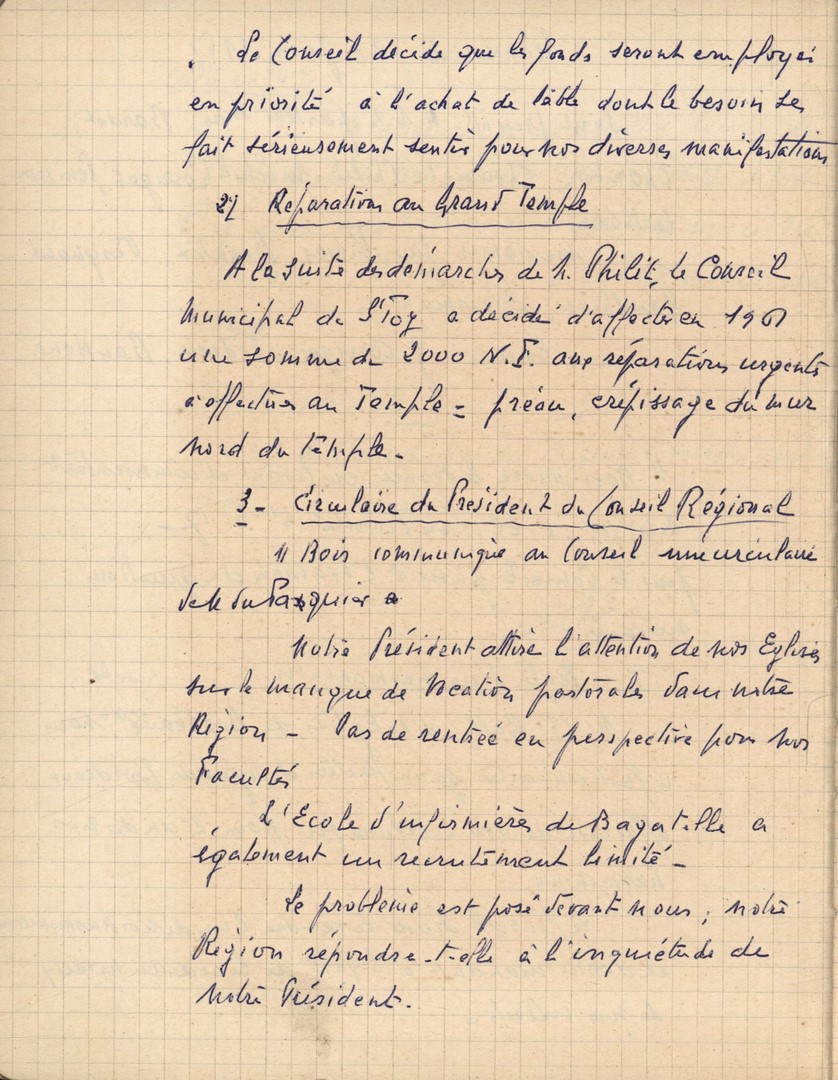 Le Conseil décide que les fonds seront employés
en priorité à l'achat de table dont le besoin se
fait sérieusement sentir pour nos diverses manifestations
2) Réparations au Grand Temple
A la suite des démarches de M. Philit, le Conseil
Municipal de a décidé d'affecter en 1961
une somme de 2000 N.F. aux réparations urgents
à effectuer au Temple = préau, crépissage du mur
nord du temple.
3- Circulaire du Président du Conseil Régional
M Bois communique au Conseil une circulaire
de M du Pasquier
Notre Président attire l'attention de nos Eglises
sur le manque de Vocation pastorales dans notre
Région - Pas de rentrée en perspective pour nos
Facultés
L'Ecole d'infirmières de Bagatelle a
également un recrutement limité -
Le problème est posé devant nous, notre
Région répondra-t-elle à l'inquiétude de
notre Président.